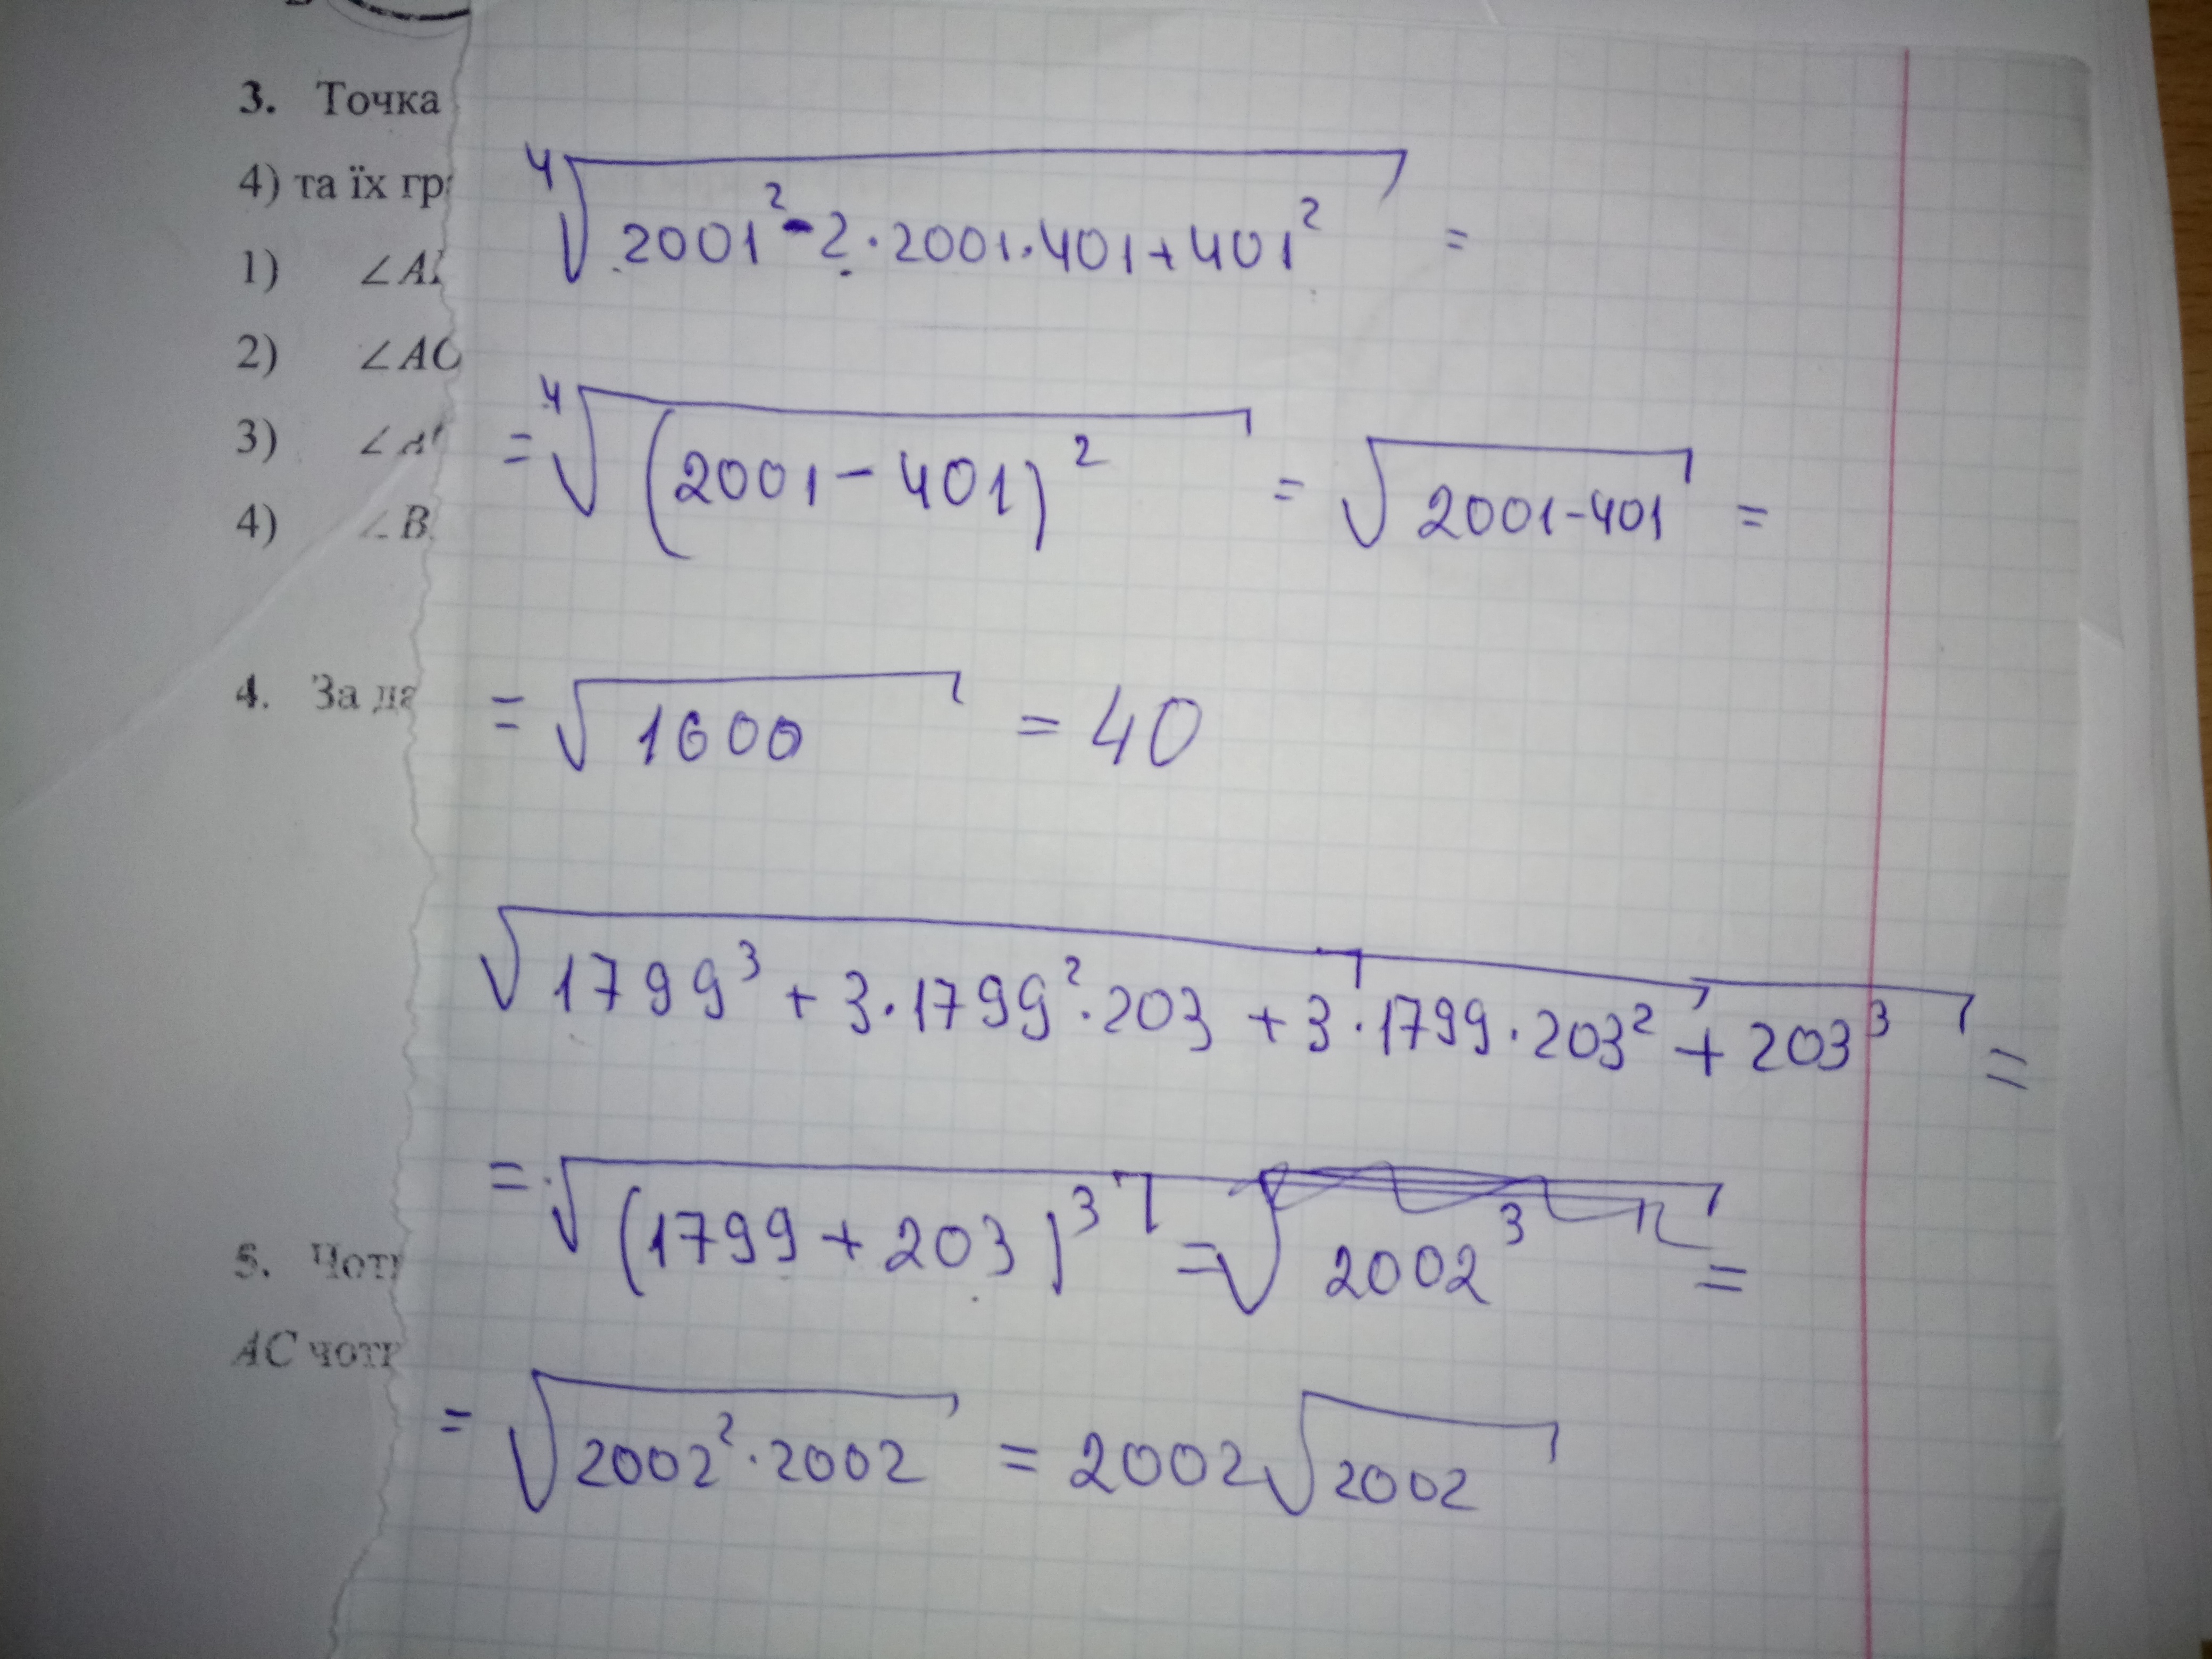 3. Точка
4) та їх гр
1) ∠A
2) ∠AC
3) ∠A
4) ∠B
4. За да
5. Чоти
AC чоти
⁴√(2001² - 2·2001·401 + 401²) =
= ⁴√((2001 - 401)²) = √(2001 - 401) =
= √1600 = 40
√(1799³ + 3·1799²·203 + 3·1799·203² + 203³) =
= √((1799 + 203)³) = √(2002³) =
= √(2002²·2002) = 2002√2002